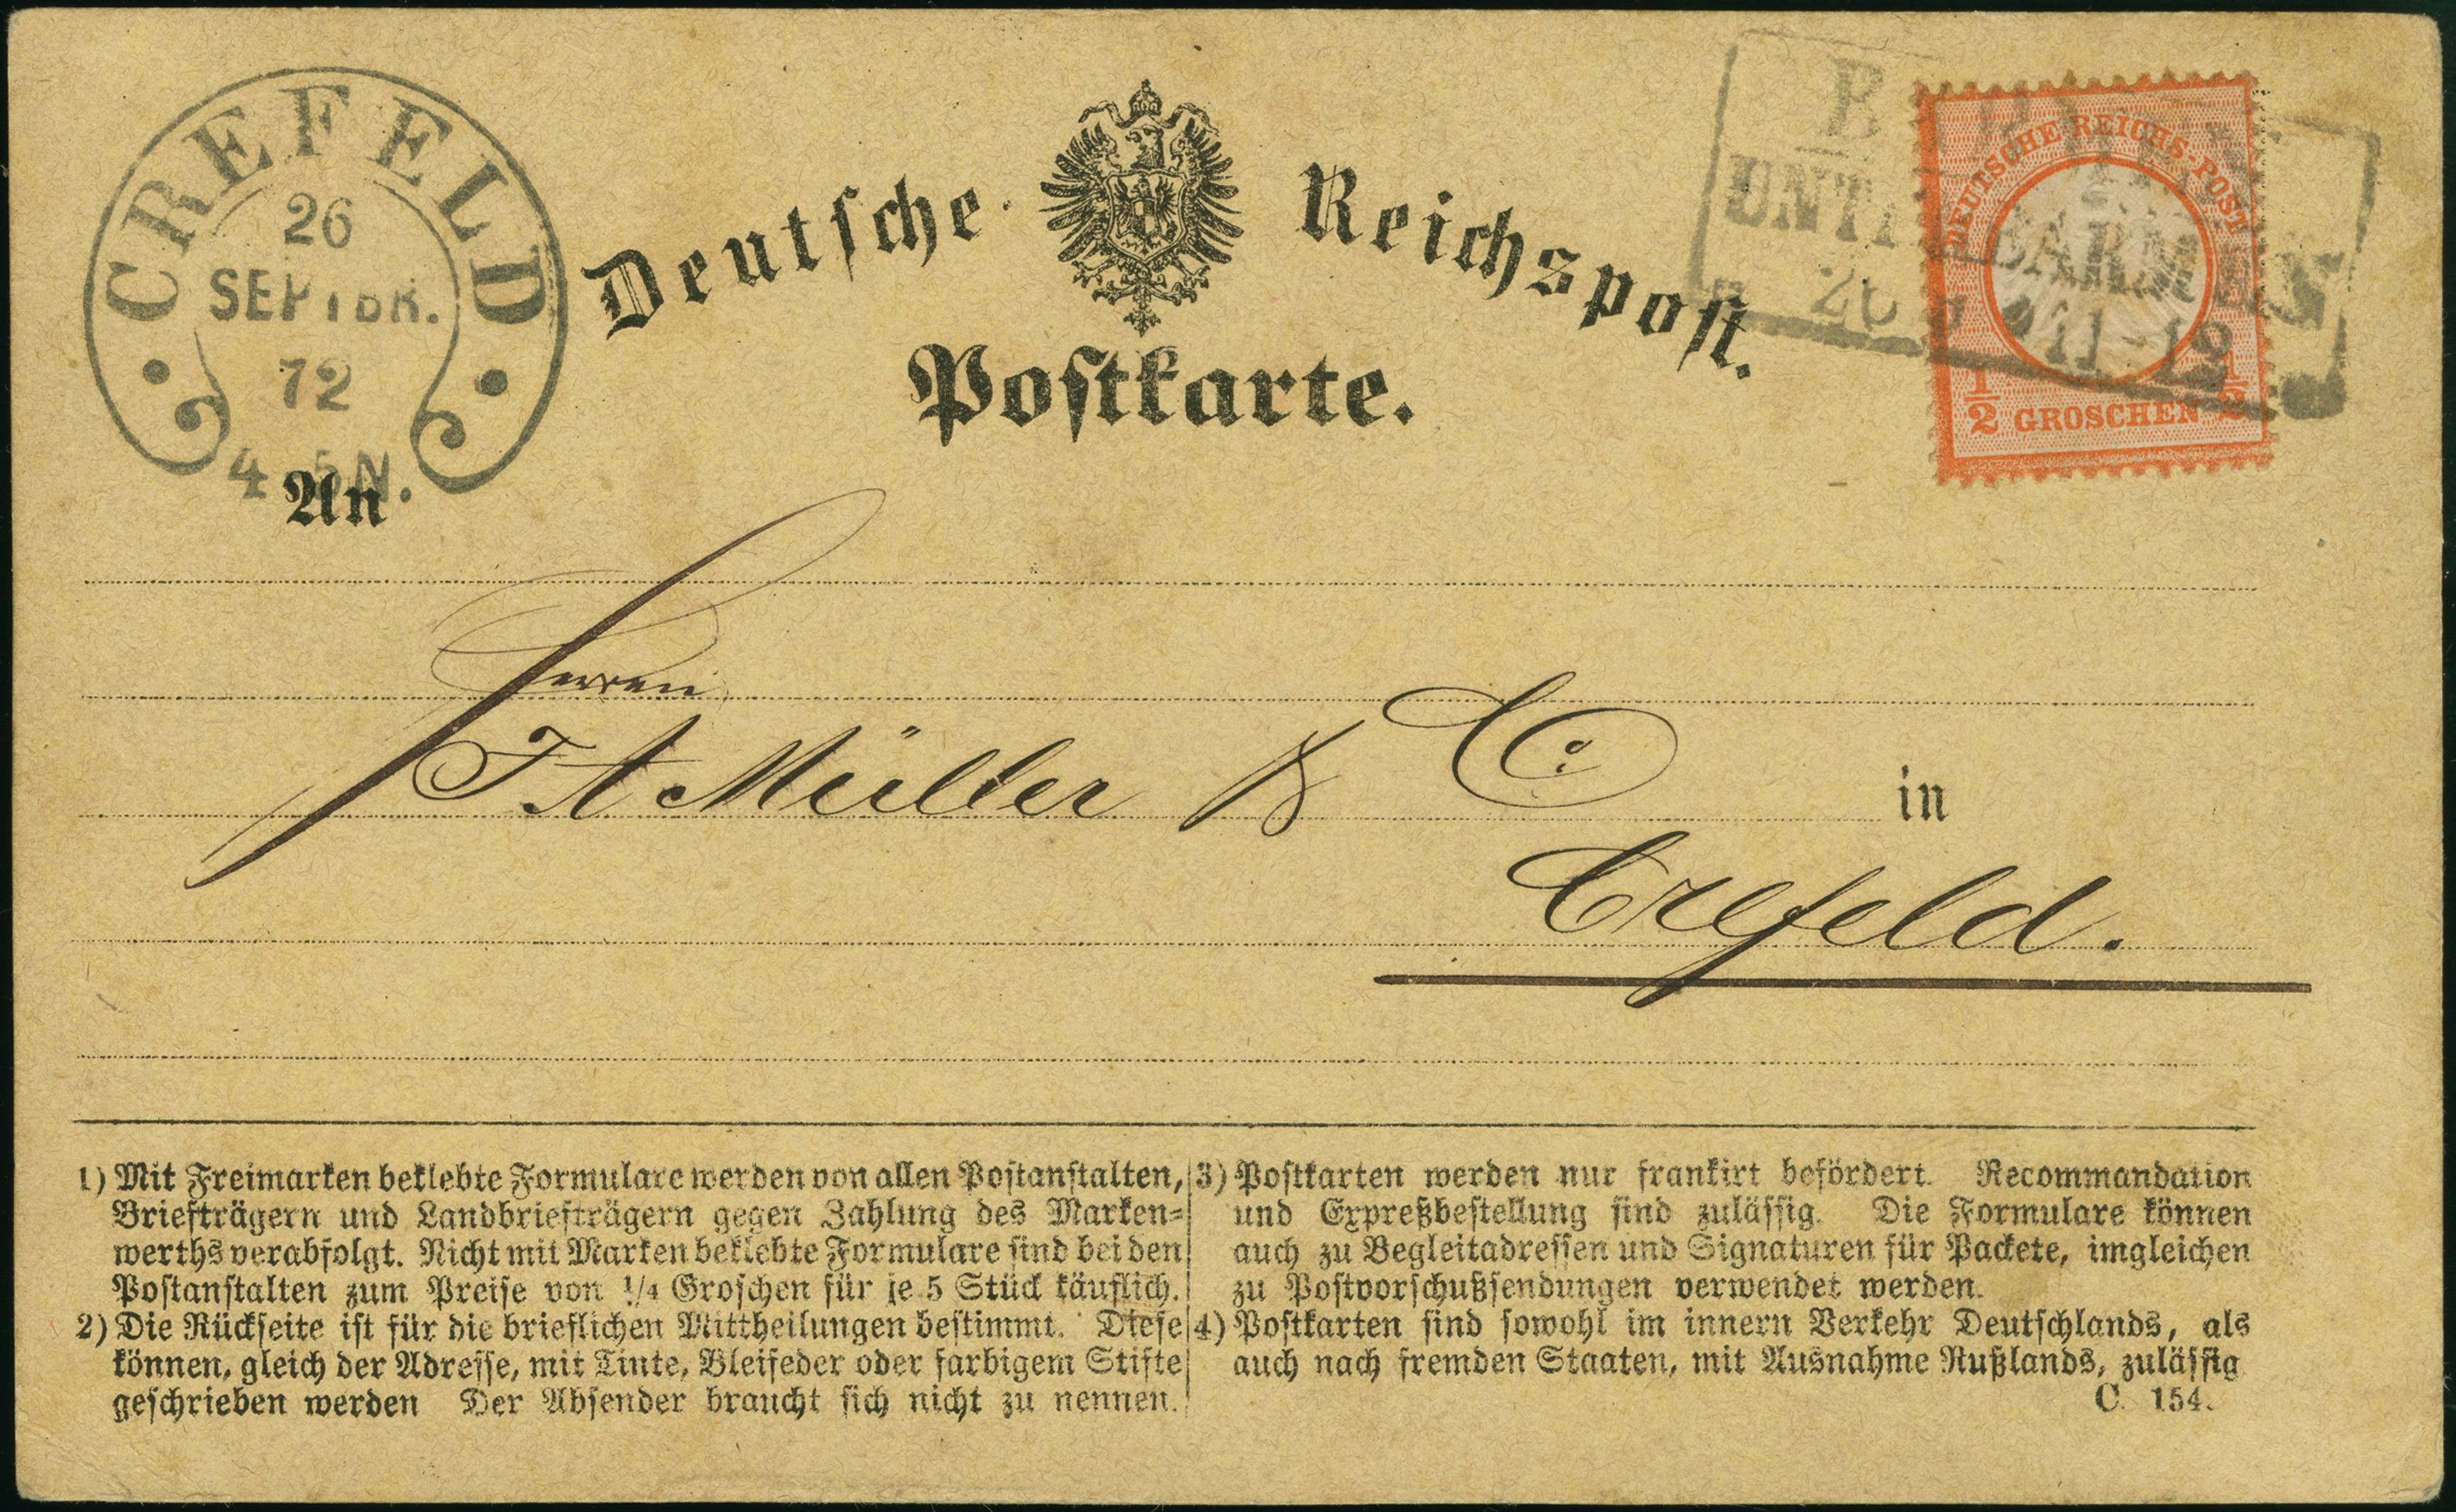 CREFELD
26
SEPTBR.
72
4 5 N.
Deutsche Reichspost.
Postkarte.
DEUTSCHE REICHS-POST
1/2 GROSCHEN 1/2
BARMEN
26 9 11-12
An
Herren
F A Müller & Co.
in
Crefeld.
1) Mit Freimarken beklebte Formulare werden von allen Postanstalten,
Briefträgern und Landbriefträgern gegen Zahlung des Marken=
werths verabfolgt. Nicht mit Marken beklebte Formulare sind bei den
Postanstalten zum Preise von 1/4 Groschen für je 5 Stück käuflich.
2) Die Rückseite ist für die brieflichen Mittheilungen bestimmt. Diese
können, gleich der Adresse, mit Tinte, Bleifeder oder farbigem Stifte
geschrieben werden Der Absender braucht sich nicht zu nennen.
3) Postkarten werden nur frankirt befördert. Recommandation
und Expreßbestellung sind zulässig. Die Formulare können
auch zu Begleitadressen und Signaturen für Packete, imgleichen
zu Postvorschußsendungen verwendet werden.
4) Postkarten sind sowohl im innern Verkehr Deutschlands, als
auch nach fremden Staaten, mit Ausnahme Rußlands, zulässig
C. 154.